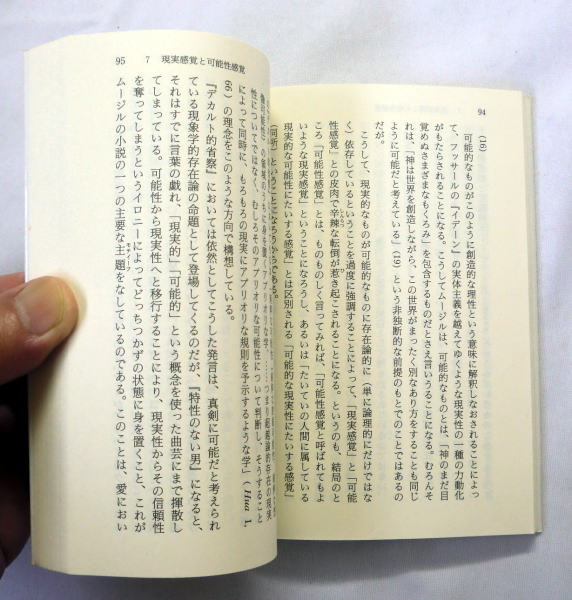 94
(16)
可能的なものがこのように創造的な理性という意味に解釈しなおされることによっ
て、フッサールの『イデーン』の実体主義を越えてゆくような現実性の一種の力動化
がもたらされることになる。こうしてムージルは、可能的なものとは、「神のまだ目
覚めぬさまざまなもくろみ」を包含するものだとさえ言いうることになる。むろんそ
れは、「神は世界を創造しながら、この世界がまったく別なあり方をすることも同じ
ように可能だと考えている」(19) という非独断的な前提のもとでのことではある
だが。
こうして、現実的なものが可能的なものに存在論的に（単に論理的にだけではな
く）依存しているということを過度に強調することによって、「現実感覚」と「可能
性感覚」との皮肉で辛辣な転倒が惹き起こされることになる。というのも、結局のと
ころ「可能性感覚」とは、ものものしく言ってみれば、「可能性感覚と呼ばれてもよ
いような現実感覚」ということになろうし、あるいは「たいていの人間に属している
現実的な可能性にたいする感覚」とは区別される「可能的な現実性にたいする感覚」
（同所）ということになろうからである。
95 7 現実感覚と可能性感覚
性についてではなく、むしろそのアプリオリな可能性について判断し、そうすること
によって同時に、もろもろの現実にアプリオリな規則を予示するような学」(Hua I,
66) の理念をこのような方向で構想している。
『デカルト的省察』においては依然としてこうした発言は、真剣に可能だと考えられ
ている現象学的存在論の命題として登場してくるのだが、『特性のない男』になると、
それはすでに言葉の戯れ、「現実的」「可能的」という概念を使った曲芸にまで揮散し
てしまっている。可能性から現実性へと移行することにより、現実性からその信頼性
を奪ってしまうというイロニーによってどっちつかずの状態に身を置くこと、これが
ムージルの小説の一つの主要な主題をなしているのである。このことは、愛におい